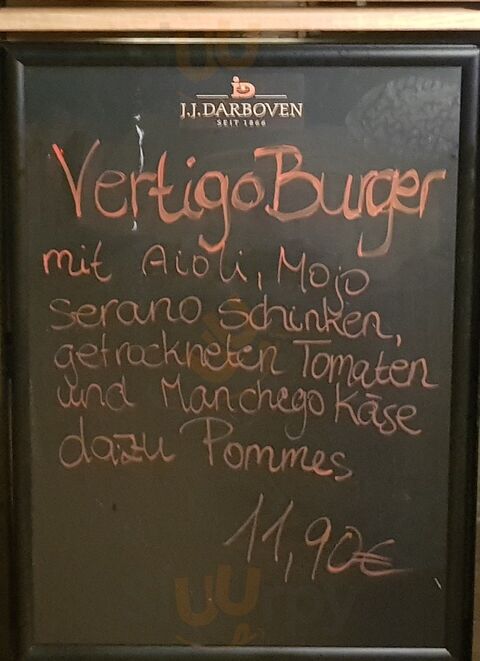 J.J.DARBOVEN
SEIT 1866
Vertigo Burger
mit Aioli, Mojo
serano schinken,
getrockneten Tomaten
und Manchego Käse
dazu Pommes
11,90€